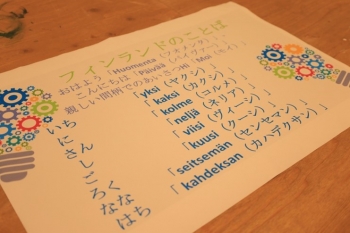 フィンランドのことば
おはよう「Huomenta（フオメンタ）」
こんにちは「Päivää（パイヴァー）」
親しい間柄でのあいさつ「Hei Moi」
いち「yksi（ヤクシ）」
に「kaksi（カクシ）」
さん「kolme（コルメ）」
し「neljä（ネリア）」
ご「viisi（ヴィーシ）」
ろく「kuusi（クーシ）」
なな「seitsemän（センセマン）」
はち「kahdeksan（カハデクサン）」